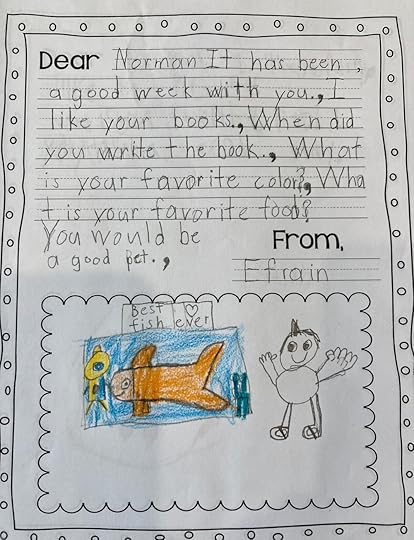 Dear Norman It has been,
a good week with you., I
like your books., When did
you write the book., What
is your favorite color?, Wha
t is your favorite food?
You would be
a good pet.,
From,
Efrain
Best
fish ever